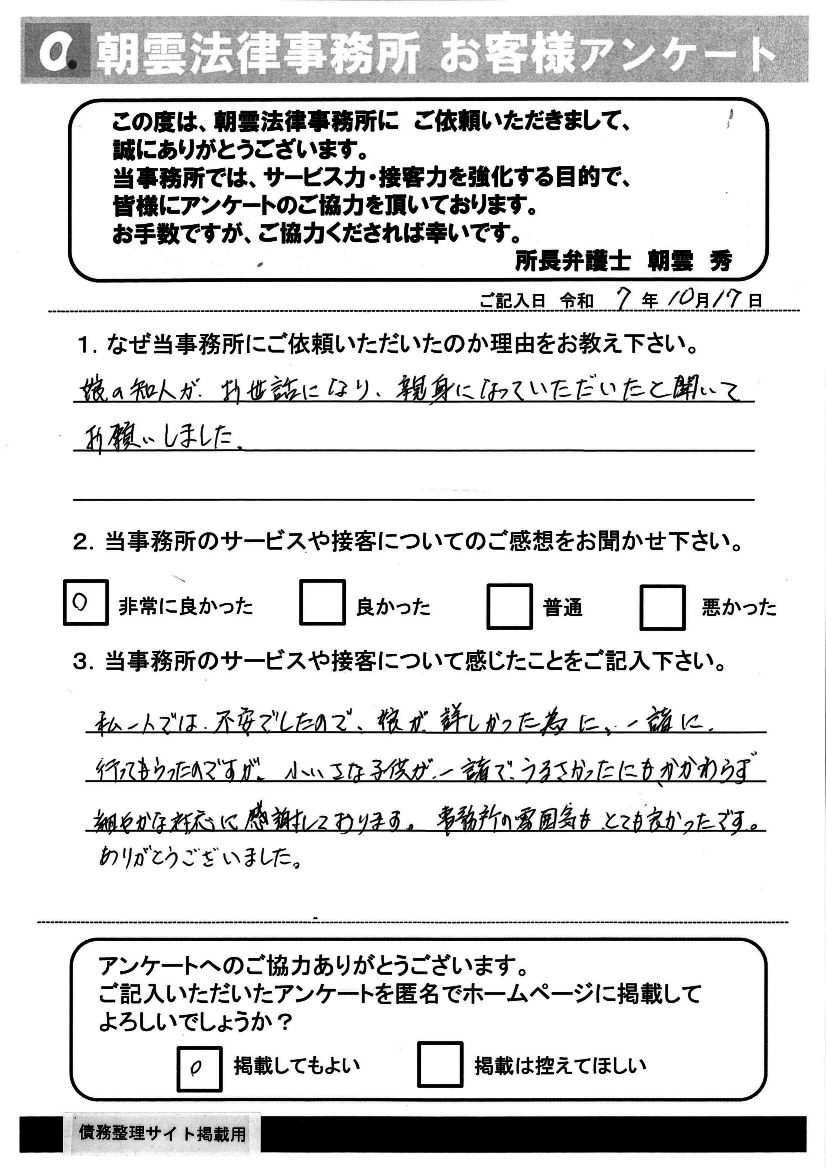 朝雲法律事務所 お客様アンケート
この度は、朝雲法律事務所に ご依頼いただきまして、
誠にありがとうございます。
当事務所では、サービス力・接客力を強化する目的で、
皆様にアンケートのご協力を頂いております。
お手数ですが、ご協力くだされば幸いです。
所長弁護士 朝雲 秀
ご記入日 令和 7 年 10月17日
1. なぜ当事務所にご依頼いただいたのか理由をお教え下さい。
娘の知人が、お世話になり、親身になっていただいたと聞いて
お願いしました。
2. 当事務所のサービスや接客についてのご感想をお聞かせ下さい。
○ 非常に良かった 良かった 普通 悪かった
3. 当事務所のサービスや接客について感じたことをご記入下さい。
私一人では、不安でしたので、娘が詳しかった為に、一諸に、
行ってもらったのですが、小いさな子供が、一諸で、うるさかったにも、かかわらず
細やかな対応に感謝しております。事務所の雰囲気も とても良かったです。
ありがとうございました。
アンケートへのご協力ありがとうございます。
ご記入いただいたアンケートを匿名でホームページに掲載して
よろしいでしょうか？
○ 掲載してもよい 掲載は控えてほしい
債務整理サイト掲載用